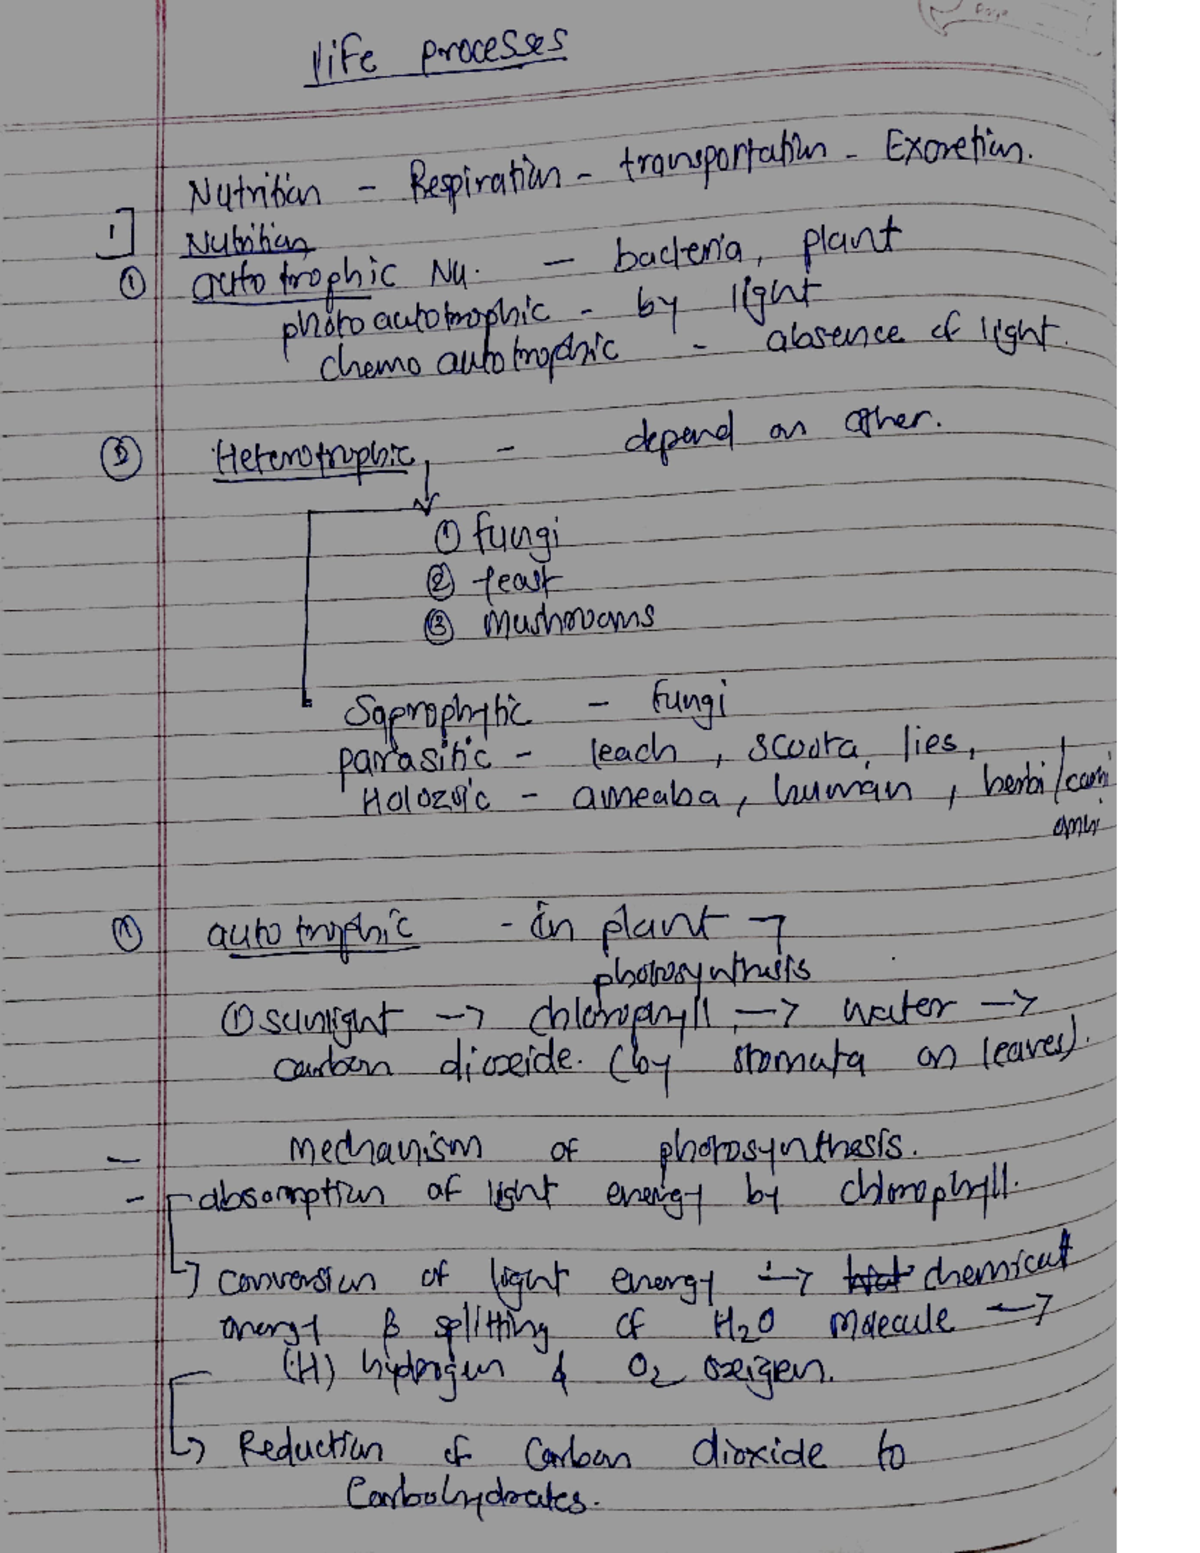 life processes
Nutrition - Respiration - transportation - Excretion.
1] Nutrition
① autotrophic Nu. - bacteria, plant
photo autotrophic - by light
chemo autotrophic - absence of light.
Heterotrophic - depend on other.
① fungi
② yeast
③ mushrooms
Saprophytic - fungi
parasitic - leach, scouta, lies,
Holozoic - ameaba, human, herbi/carni
omni
① autotrophic - in plant →
photosynthesis
① sunlight → chlorophyll → water →
carbon dioxeide. (by stomata on leaves).
- mechanism of photosynthesis.
- absorption of light energy by chlorophyll.
↳ conversion of light energy → chemical
energy & splitting of H2O molecule →
(H) hydrogen & O2 oxeigen.
↳ Reduction of Carbon dioxide to
Carbohydrates.